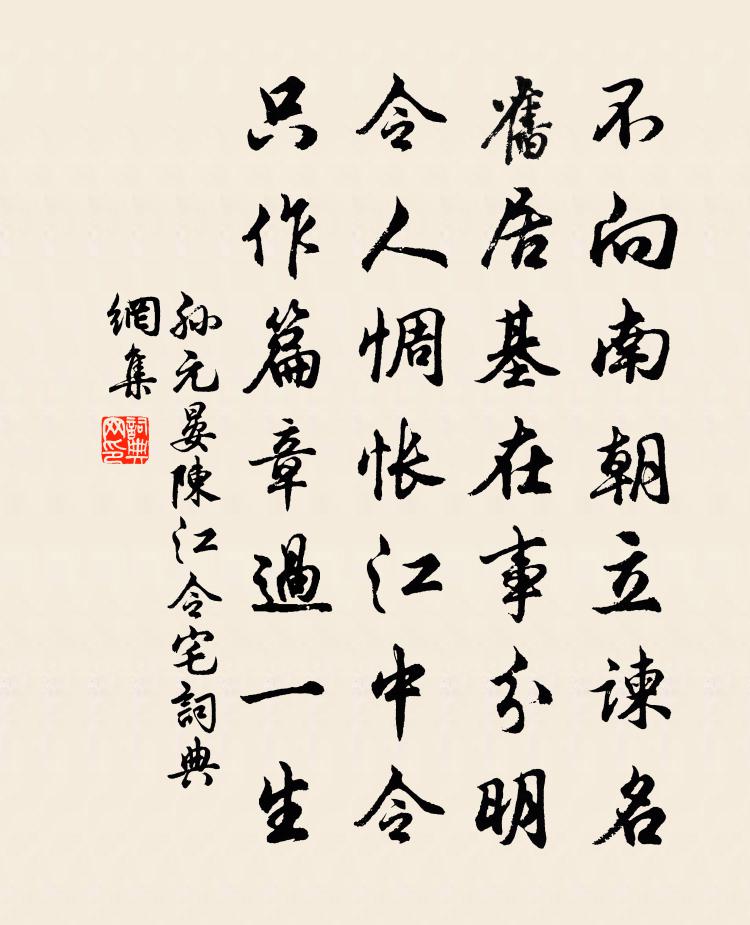 不向南朝立諫名
舊居基在事分明
令人惆悵江中令
只作篇章過一生
孫元晏陳江令宅詞典
網集
詞典網印